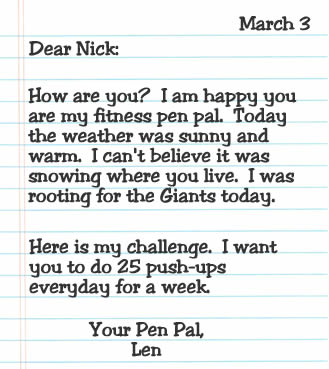 March 3
Dear Nick:
How are you? I am happy you
are my fitness pen pal. Today
the weather was sunny and
warm. I can't believe it was
snowing where you live. I was
rooting for the Giants today.
Here is my challenge. I want
you to do 25 push-ups
everyday for a week.
Your Pen Pal,
Len